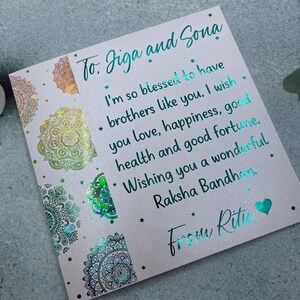 To, Jiga and Sona
I'm so blessed to have
brothers like you. I wish
you Love, happiness, good
health and good fortune.
Wishing you a wonderful
Raksha Bandhan.
From Ritu